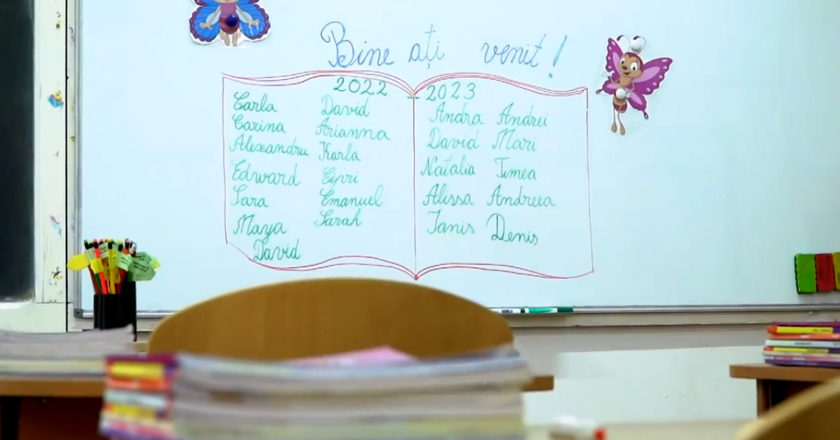 Bine ați venit!
2022
2023
Carla David
Carina Arianna
Alexandru Karla
Edward Cipri
Sara Emanuel
Maya Sarah
David
Andra Andrei
David Mari
Natalia Timea
Alissa Andreea
Ianis Denis